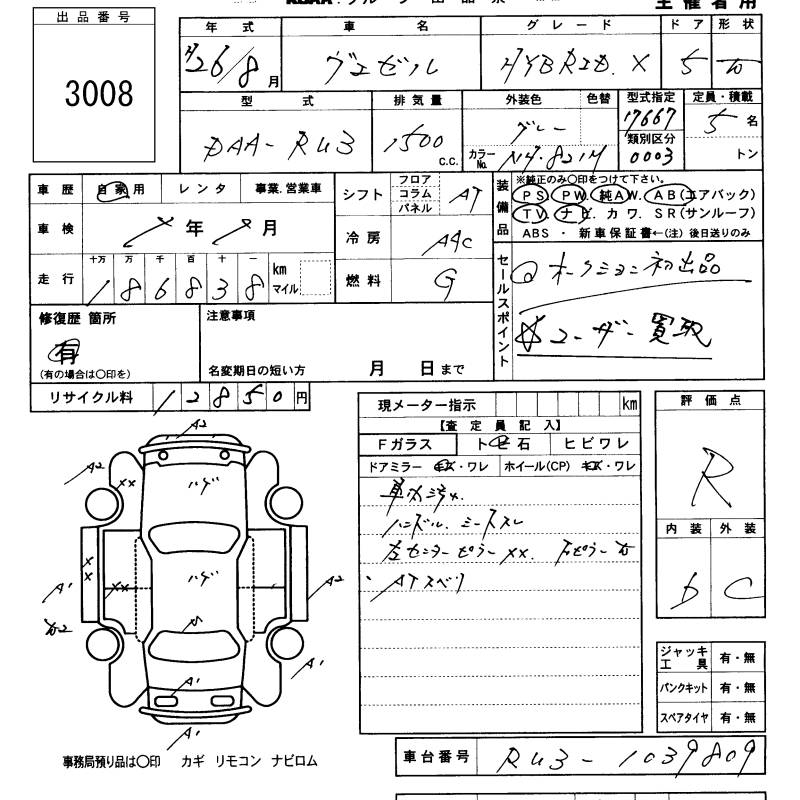 出品番号
3008
年式 車名 グレード ドア 形状
H26/8月 ヴェゼル HYBRID. X 5 W
型式 排気量 外装色 色替 型式指定 定員・積載
DAA-RU3 1500 C.C. グレー 17667 5名
カラーNo. NH・821M 類別区分 0003 トン
車歴 自家用 レンタ 事業.営業車
シフト フロア コラム パネル AT
装備品 ※純正のみ〇印をつけて下さい。
PS PW. 純AW. AB(エアバック)
TV. ナビ. カワ. SR(サンルーフ)
ABS ・ 新車保証書←(注) 後日送りのみ
車検 年 月
冷房 AAC
走行 十万 万 千 百 十 一 km マイル
186838
燃料 G
セールスポイント
オークション初出品
☆ユーザー買取
修復歴 箇所 注意事項
有
(有の場合は〇印を) 名変期日の短い方 月 日まで
リサイクル料 12850円
現メーター指示 km
【査定員記入】
Fガラス トビ石 ヒビワレ
ドアミラー キズ・ワレ ホイール(CP) キズ・ワレ
車内汚れ
ハンドル、シートスレ
左センターピラーXX.
ATスベリ
評価点
R
内装 外装
D C
A2
A2
XX
ハゲ
XX
XX
ハゲ
A1
A2
A1
A1
A1
ジャッキ工具 有・無
パンクキット 有・無
スペアタイヤ 有・無
事務局預り品は〇印 カギ リモコン ナビロム
車台番号 RU3-1039809